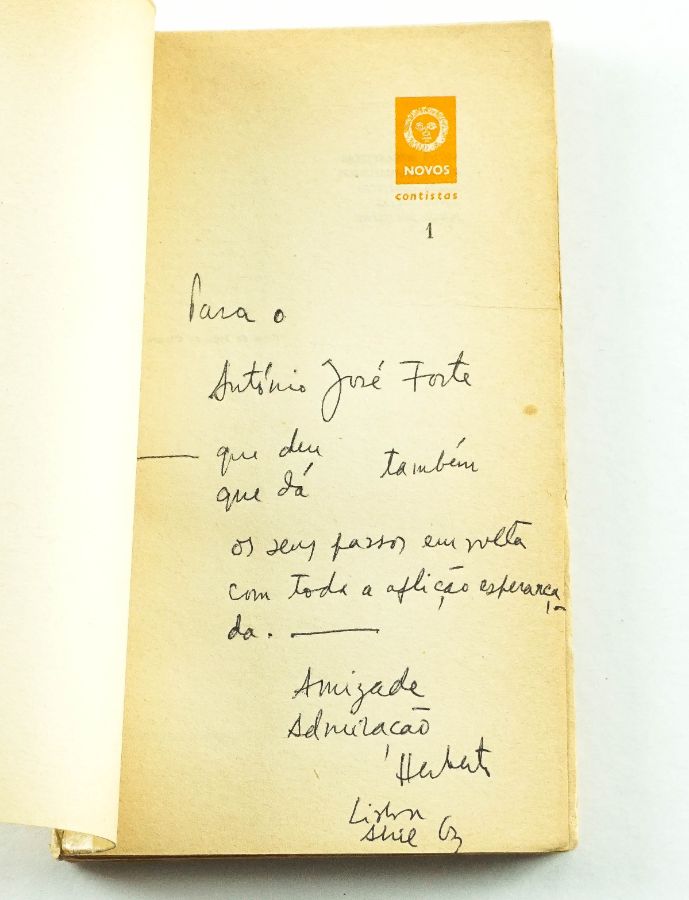 NOVOS
contistas
1
Para o
António José Forte
— que deu também
que dá
os seus passos em volta
com toda a aflição esperança-
da. —
Amizade
Admiração
Herberto
Lisboa
63